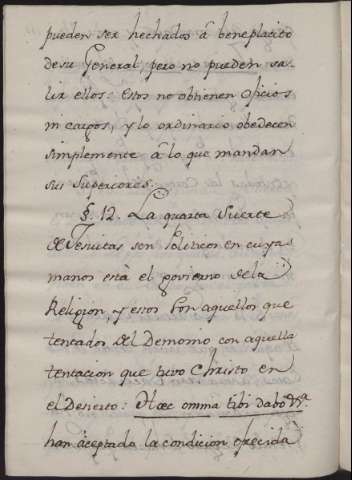 pueden ser hechados â beneplacito
de su General, pero no pueden sa-
lir ellos: estos no obtienen oficios
ni cargos, y lo ordinario obedecen
simplemente â lo que mandan
sus Superiores.
§. 12. La quarta suerte
de Jesuitas son Politicos en cuyas
manos està el govierno de la
Religion, y estos son aquellos que
tentados del Demonio con aquella
tentacion que tuvo Christo en
el Desierto: Hæc omnia tibi dabo &ª
han àceptado la condicion ofrecida